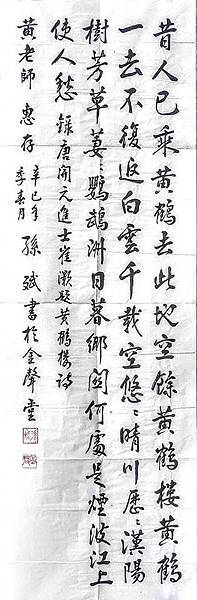 昔人已乘黃鶴去此地空餘黃鶴樓黃鶴
一去不復返白雲千載空悠々晴川歷々漢陽
樹芳草萋々鸚鵡洲日暮鄉關何處是煙波江上
使人愁 錄唐開元進士崔灝題黃鶴樓詩
黃老師 惠存 辛巳年
季春月
孫斌書於金聲堂